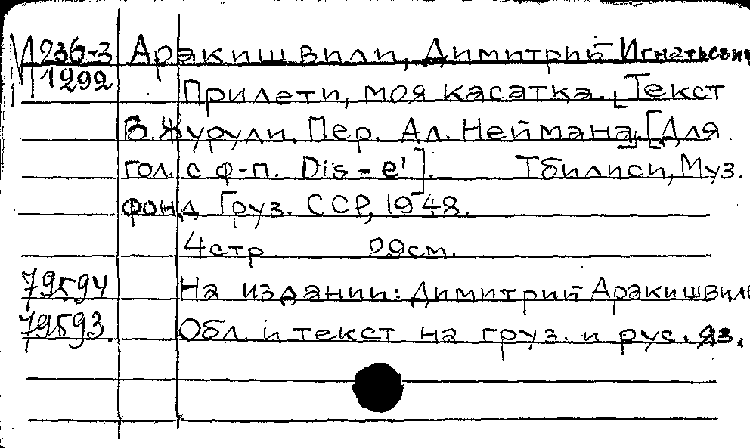 М 236-3 Аракишвили, Димитрий Игнатьевич
1292 Прилети, моя касатка. [Текст
В. Журули. Пер. Ал. Неймана]. [Для
гол. с ф-п. Dis - e']. Тбилиси, Муз.
фонд Груз. ССР, 1948.
4 стр см.
79594 На издании: Димитрий Аракишвили
79593. Обл. и текст на груз. и рус. яз.